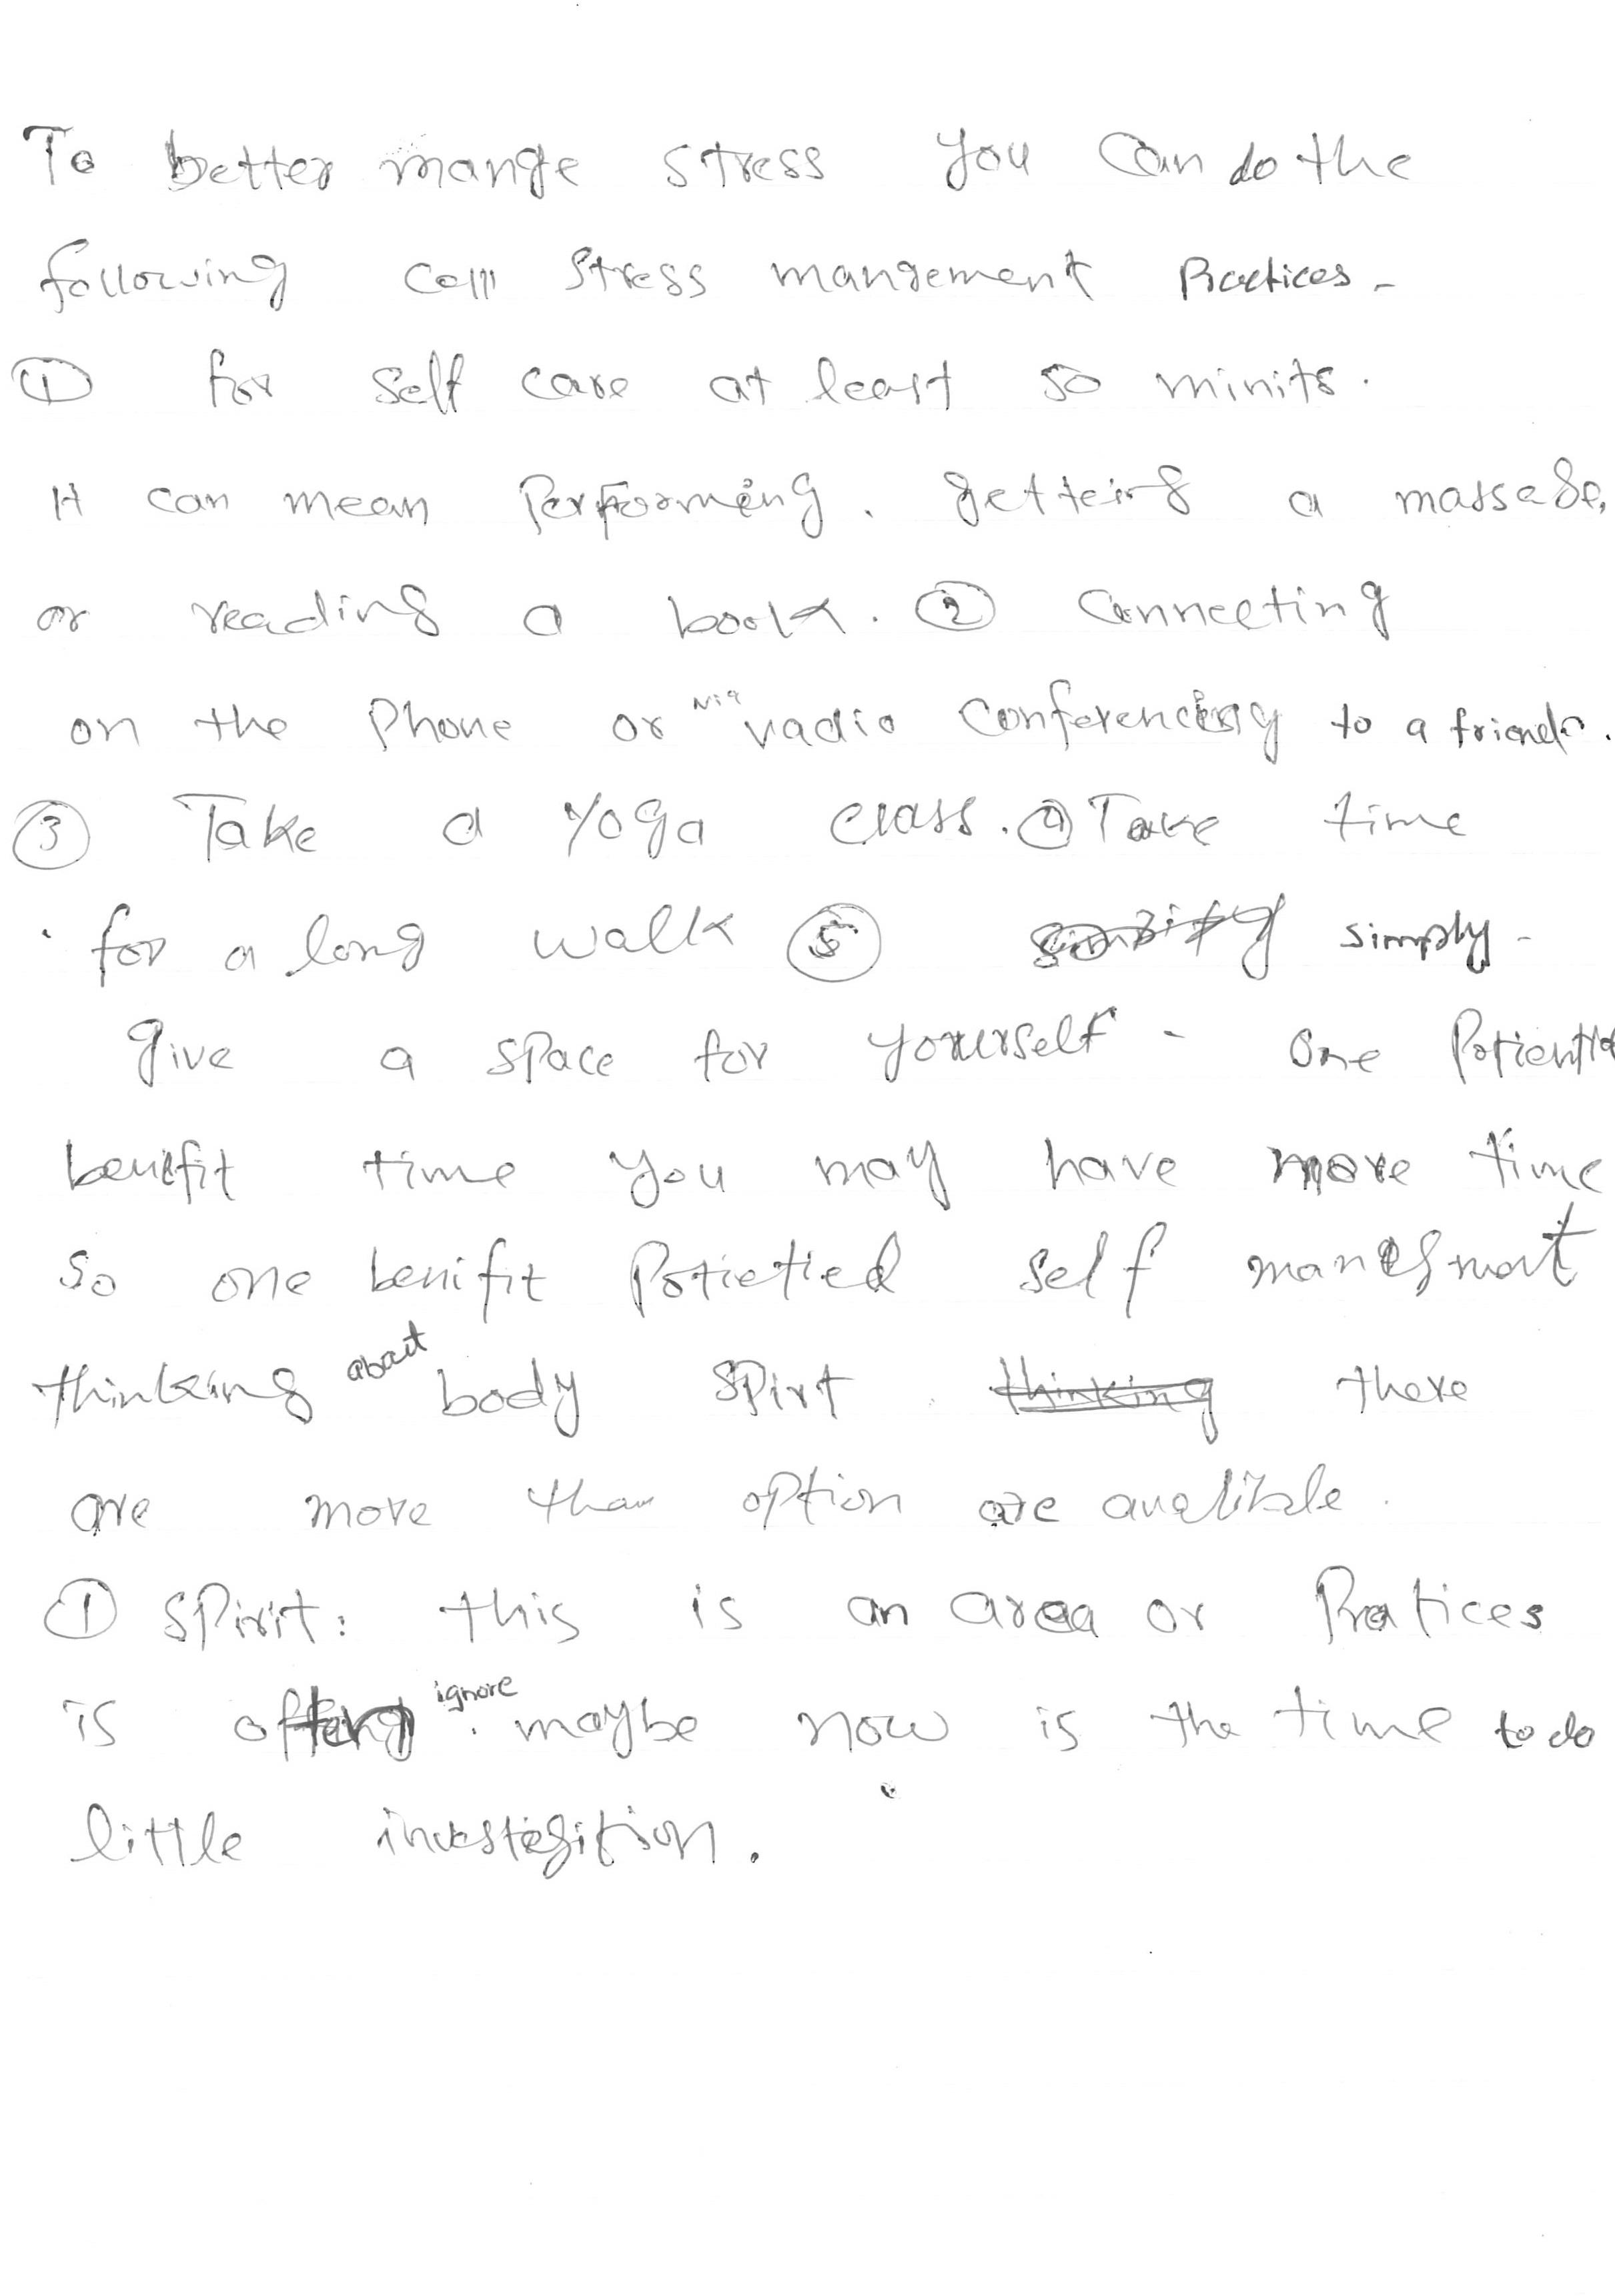 To better mange stress you can do the
following call stress mangement Practices -
① for self care at least 50 minits.
It can mean Performing. getteing a massage,
or reading a book. ② Connecting
on the Phone or via vadio conferencing to a friend.
③ Take a yoga class. ④ Take time
for a long walk ⑤ simply -
give a space for yourself - One
benifit time you may have more time
so one benifit self
thinking about body spirt there
are more than option are
① spirit: this is an area or Pratices
is ignore maybe now is the time to do
little investegition.